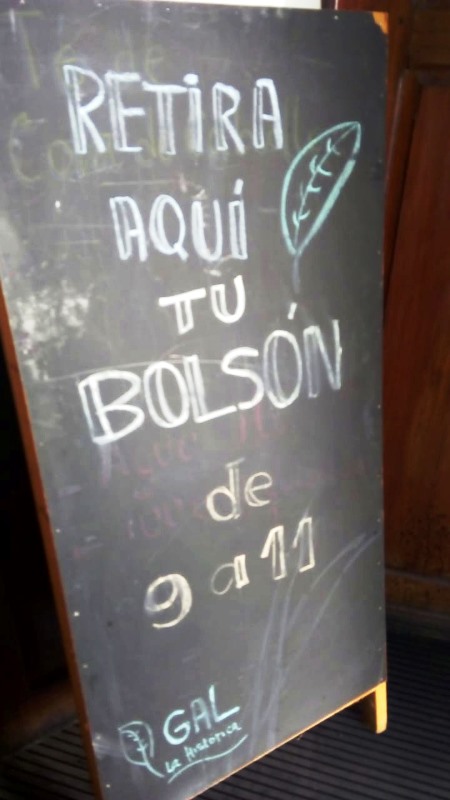 RETIRA
AQUÍ
TU
BOLSÓN
de
9 a 11
GAL
La Historica